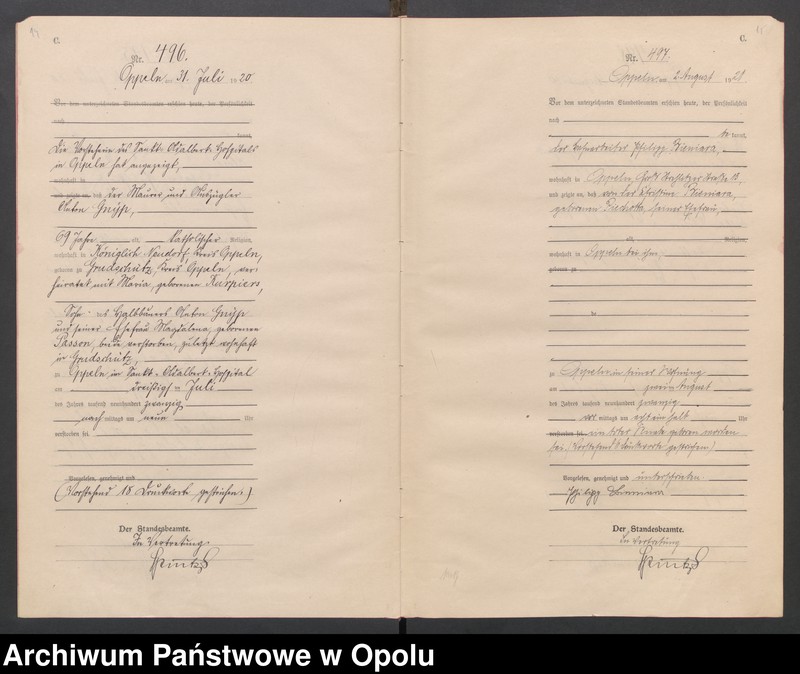 C.
Nr. 496.
Oppeln am 31. Juli 1920
Vor dem unterzeichneten Standesbeamten erschien heute, der Persönlichkeit
nach
kannt,
Die Vorsteherin des Sankt-Adalbert-Hospitals
in Oppeln hat angezeigt,
wohnhaft in
und zeigte an, daß der Maurer und Auszügler
Anton
69 Jahre alt, katholischer Religion,
wohnhaft in Königlich Neudorf, Kreis Oppeln,
geboren zu Grudschütz, Kreis Oppeln, ver-
heiratet mit Maria, geborenen Kurpiers,
Sohn des Halbbauers Anton
und seiner Ehefrau Magdalena, geborenen
Sasson, beide verstorben, zuletzt wohnhaft
in Grudschütz,
zu Oppeln, im Sankt-Adalbert-Hospital
am dreißigsten Juli
des Jahres tausend neunhundert zwanzig
nachmittags um neun Uhr
verstorben sei.
Vorgelesen, genehmigt und
(Vorstehend 18 Druckworte gestrichen.)
Der Standesbeamte.
In Vertretung.
C.
Nr. 497.
Oppeln am 2. August 1920
Vor dem unterzeichneten Standesbeamten erschien heute, der Persönlichkeit
nach
kannt,
der Philipp Bieniara,
wohnhaft in Oppeln, Groß Strehlitzer Straße
und zeigte an, daß von der Christine Bieniara,
geborenen Piechotta, seiner Ehefrau,
alt, Religion,
wohnhaft in Oppeln bei ihm,
geboren zu
zu Oppeln in seiner Wohnung
am zweiten August
des Jahres tausend neunhundert zwanzig
vormittags um acht ein halb Uhr
verstorben sei. ein toter Knabe geboren worden
sei. (Vorstehend Druckworte gestrichen)
Vorgelesen, genehmigt und unterschrieben.
Philipp Bieniara
Der Standesbeamte.
In Vertretung
Archiwum Państwowe w Opolu